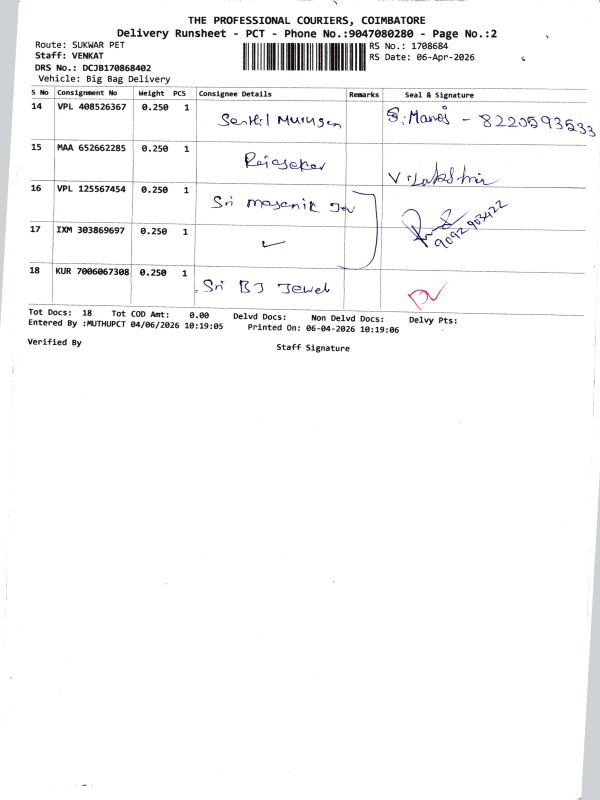 THE PROFESSIONAL COURIERS, COIMBATORE
Delivery Runsheet - PCT - Phone No.:9047080280 - Page No.:2
Route: SUKWAR PET
RS No.: 1708684
Staff: VENKAT
RS Date: 06-Apr-2026
DRS No.: DCJB170868402
Vehicle: Big Bag Delivery
S No Consignment No Weight PCS Consignee Details Remarks Seal & Signature
14 VPL 408526367 0.250 1 Senthil Murugan S. Manoj - 8220593533
15 MAA 652662285 0.250 1 Rajasekar V. Lakshmi
16 VPL 125567454 0.250 1 Sri
9092 903422
17 IXM 303869697 0.250 1
18 KUR 7006067308 0.250 1 Sri BJ Jewel
Tot Docs: 18 Tot COD Amt: 0.00 Delvd Docs: Non Delvd Docs: Delvy Pts:
Entered By :MUTHUPCT 04/06/2026 10:19:05 Printed On: 06-04-2026 10:19:06
Verified By
Staff Signature